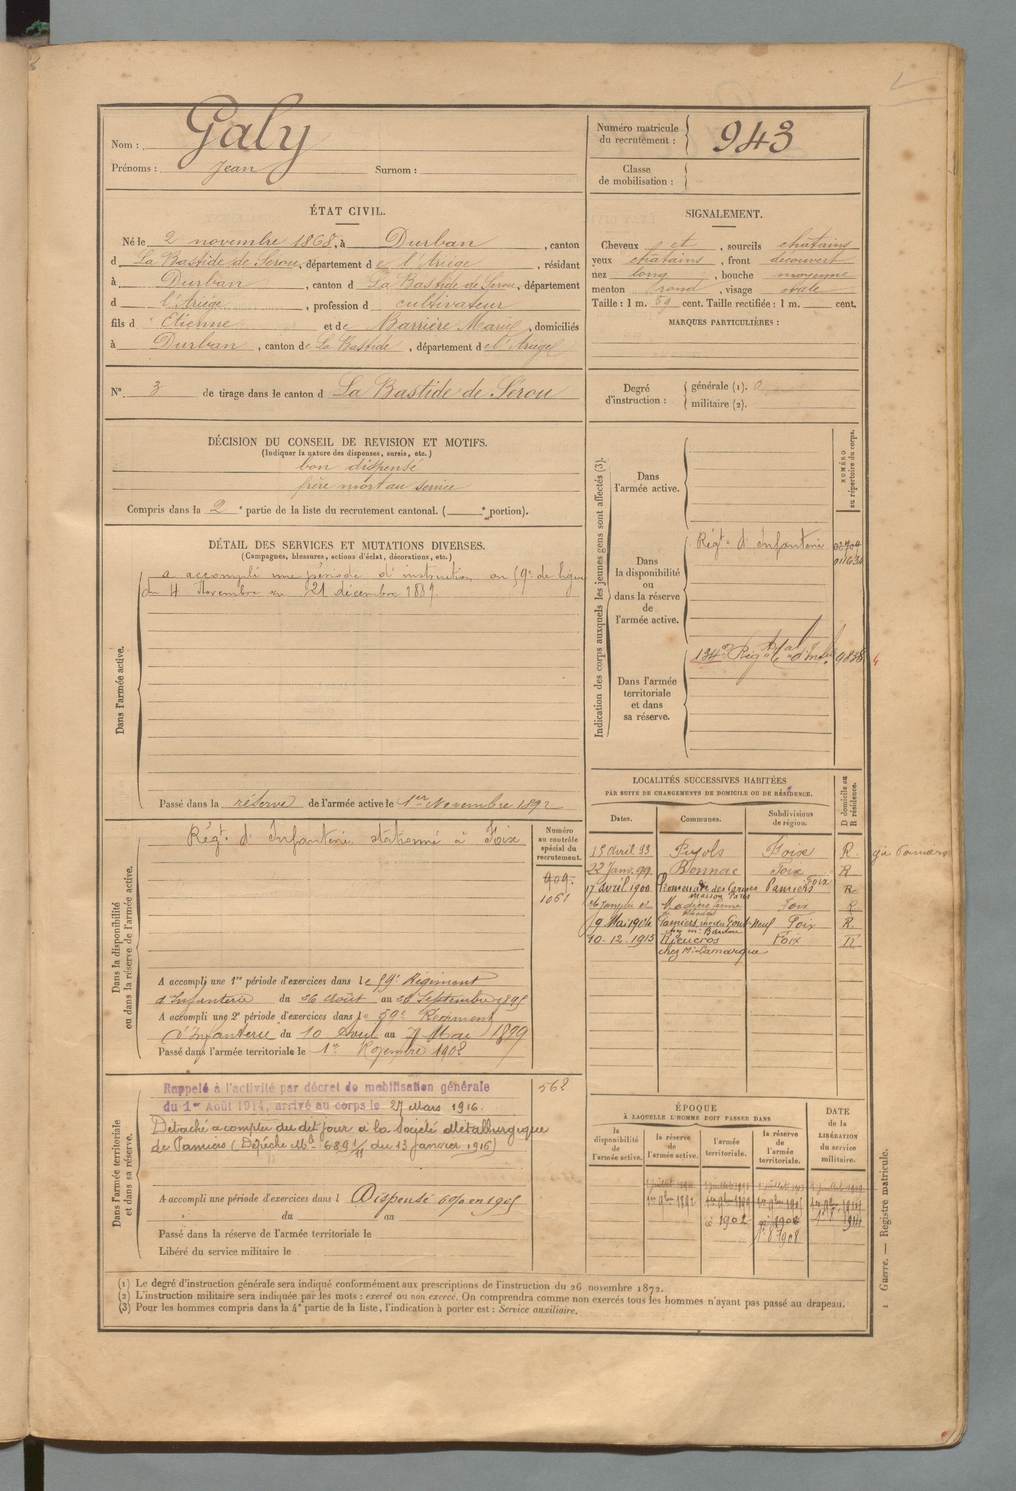 Nom : Galy
Prénoms : Jean Surnom :
Numéro matricule du recrutement : 943
Classe de mobilisation :
ÉTAT CIVIL.
Né le 2 novembre 1868, à Durban, canton
d La Bastide de Serou, département de l'Ariège, résidant
à Durban, canton d La Bastide de Serou, département
d l'Ariège, profession d cultivateur
fils d Etienne et de Barrière Marie, domiciliés
à Durban, canton de La Bastide, département de l'Ariège
N° 3 de tirage dans le canton d La Bastide de Serou
SIGNALEMENT.
Cheveux et, sourcils chatains
yeux chatains, front découvert
nez long, bouche moyenne
menton rond, visage ovale
Taille : 1 m. 59 cent. Taille rectifiée : 1 m. cent.
MARQUES PARTICULIÈRES :
Degré d'instruction :
générale (1). 0
militaire (2).
DÉCISION DU CONSEIL DE REVISION ET MOTIFS.
(Indiquer la nature des dispenses, sursis, etc.)
bon dispensé
frère mort au service
Compris dans la 2e partie de la liste du recrutement cantonal. ( e portion).
DÉTAIL DES SERVICES ET MUTATIONS DIVERSES.
(Campagnes, blessures, actions d'éclat, décorations, etc.)
Dans l'armée active.
a accompli une période d'instruction au 59e de ligne
du 4 Novembre au 21 décembre 1889.
Passé dans la réserve de l'armée active le 1er Novembre 1892
Indication des corps auxquels les jeunes gens sont affectés (3).
NUMÉRO au répertoire du corps.
Dans l'armée active.
Dans la disponibilité ou dans la réserve de l'armée active.
Régt d'Infanterie
Dans l'armée territoriale et dans sa réserve.
134e Régt
Dans la disponibilité ou dans la réserve de l'armée active.
Régt d'Infanterie stationné à Foix
Numéro au contrôle spécial du recrutement.
909.
1051
A accompli une 1re période d'exercices dans le 59e Régiment
d'Infanterie du 26 Août au 22 Septembre 1895
A accompli une 2e période d'exercices dans le 59e Régiment
d'Infanterie du 10 Avril au 7 Mai 1899
Passé dans l'armée territoriale le 1er Novembre 1902
LOCALITÉS SUCCESSIVES HABITÉES
PAR SUITE DE CHANGEMENTS DE DOMICILE OU DE RÉSIDENCE.
D domicile ou R résidence.
Dates. Communes. Subdivisions de région.
15 Avril 93 Pujols Foix R
22 Janv. 99 Bonnac Foix R
17 Avril 1900 Promenade des Pamiers Foix R
Maison
Foix R
19 Mai 1904 Pamiers rue du Pont-Neuf Foix R.
10.12.1913 Rieucros Foix R
chez Mr Lamarque
Dans l'armée territoriale et dans sa réserve.
Rappelé à l'activité par décret de mobilisation générale
du 1er Août 1914, arrivé au corps le 27 Mars 1916.
Détaché à compter du dit jour à la Société Métallurgique
de Pamiers (Dépêche Mlle 689 du 13 janvier 1916)
562
A accompli une période d'exercices dans l Dispensé en 1905
du au
Passé dans la réserve de l'armée territoriale le
Libéré du service militaire le
ÉPOQUE
À LAQUELLE L'HOMME DOIT PASSER DANS
DATE de la LIBÉRATION du service militaire.
la disponibilité de l'armée active. la réserve de l'armée active. l'armée territoriale. la réserve de l'armée territoriale.
1902
1908
(1) Le degré d'instruction générale sera indiqué conformément aux prescriptions de l'instruction du 26 novembre 1872.
(2) L'instruction militaire sera indiquée par les mots : exercé ou non exercé. On comprendra comme non exercés tous les hommes n'ayant pas passé au drapeau.
(3) Pour les hommes compris dans la 4e partie de la liste, l'indication à porter est : Service auxiliaire.
1 Guerre. — Registre matricule.